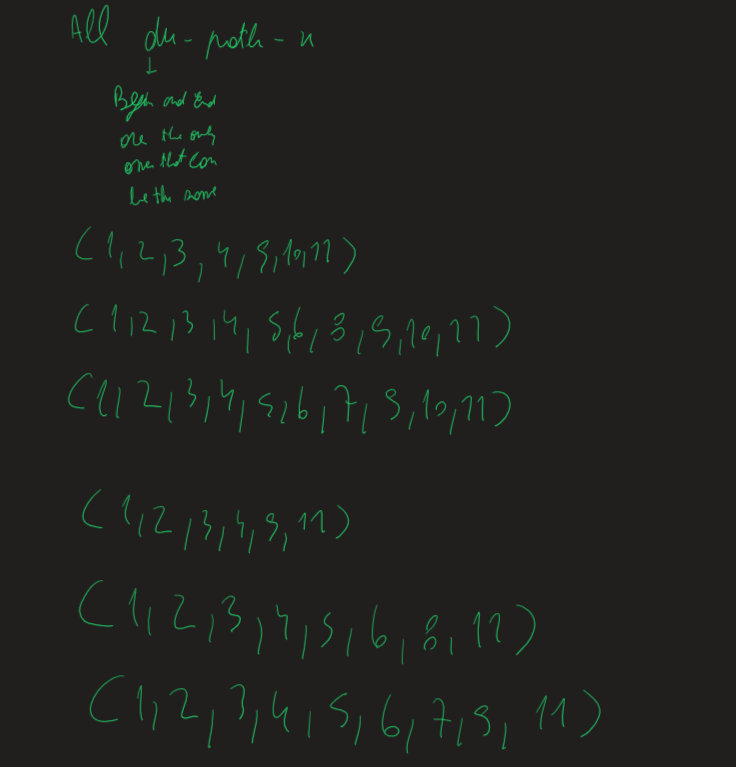 All du-path-x
Begin and End
are the only
ones that can
be the same
(1,2,3,4,9,10,11)
(1,2,3,4,5,6,8,9,10,11)
(1,2,3,4,5,6,7,9,10,11)
(1,2,3,4,9,11)
(1,2,3,4,5,6,8,11)
(1,2,3,4,5,6,7,9,11)